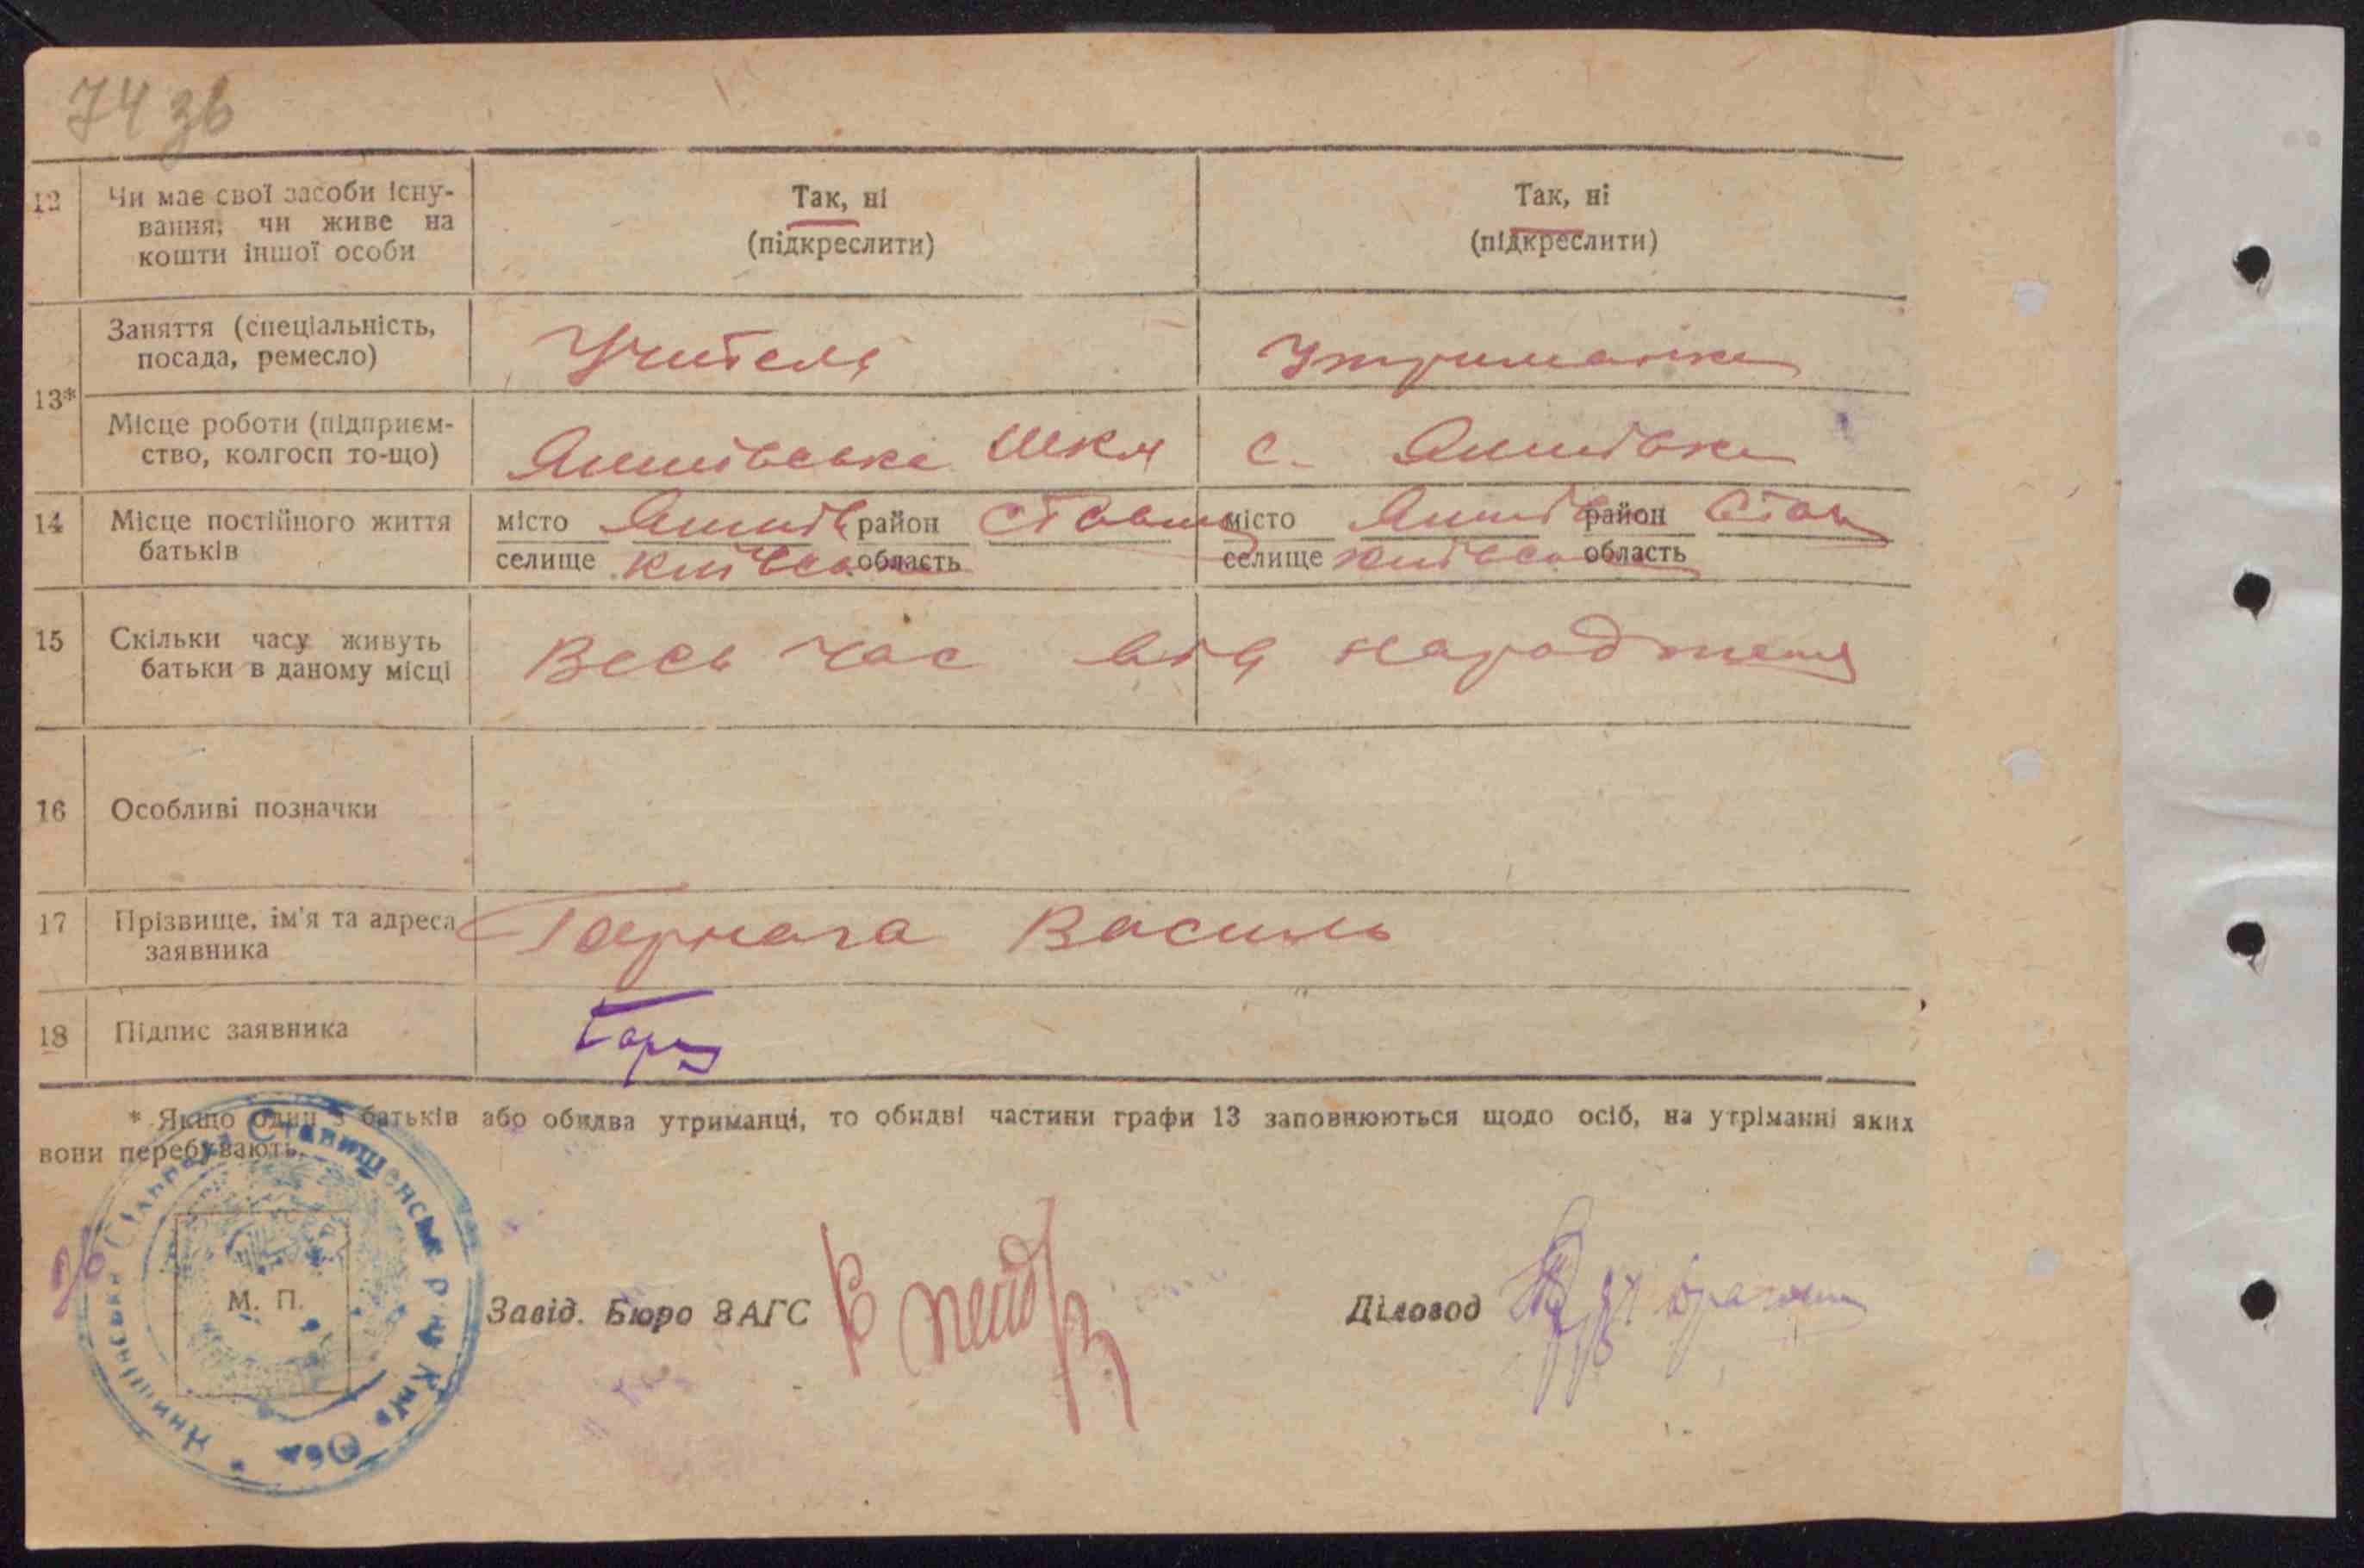 74 зв
12 Чи має свої засоби існу-
вання, чи живе на
кошти іншої особи
Так, ні
(підкреслити)
Так, ні
(підкреслити)
13*
Заняття (спеціальність,
посада, ремесло)
Учитель
Утриманка
Місце роботи (підприєм-
ство, колгосп то-що)
Яншівська шкл
с. Яншівка
14 Місце постійного життя
батьків
місто Яншів район Ставищ
селище Київська область
місто Яншів район Став
селище Київська область
15 Скільки часу живуть
батьки в даному місці
Весь час від народження
16 Особливі позначки
17 Прізвище, ім'я та адреса
заявника
Василь
18 Підпис заявника
* Якщо один з батьків або обидва утриманці, то обидві частини графи 13 заповнюються щодо осіб, на утріманні яких
вони перебувають.
М. П.
Завід. Бюро ЗАГС
Діловод